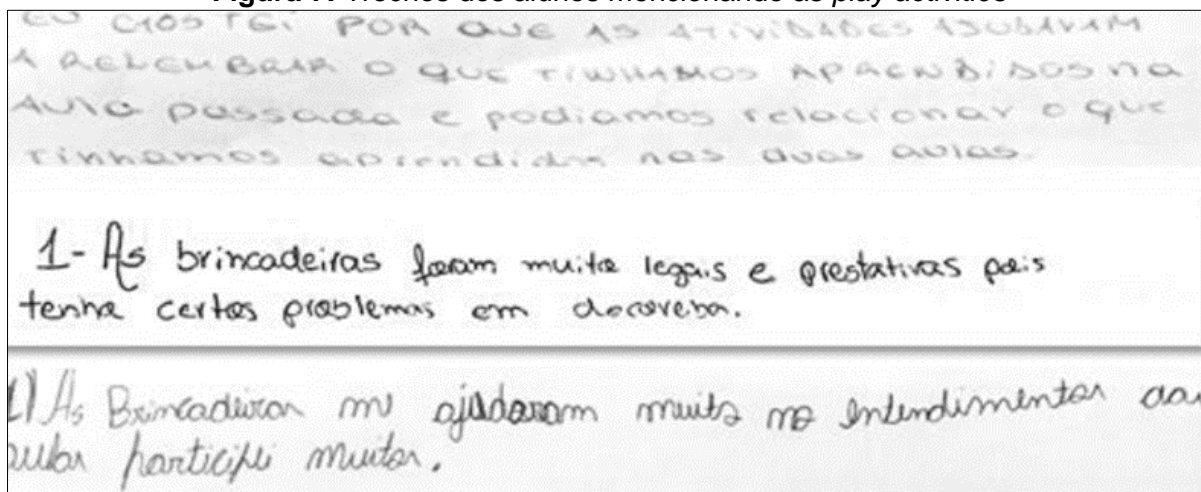 Figura 7: Trechos dos alunos mencionando as play activities
EU GOSTEI POR QUE AS ATIVIDADES AJUDAVAM
A RELEMBRAR O QUE TINHAMOS APRENDIDOS na
AULA passada e podiamos relacionar o que
tinhamos aprendidos nas duas aulas.
1- As brincadeiras foram muito legais e prestativas pois
tenho certos problemas em
1) As Brincadeiras me ajudaram muito no entendimento da
aula participei muito.